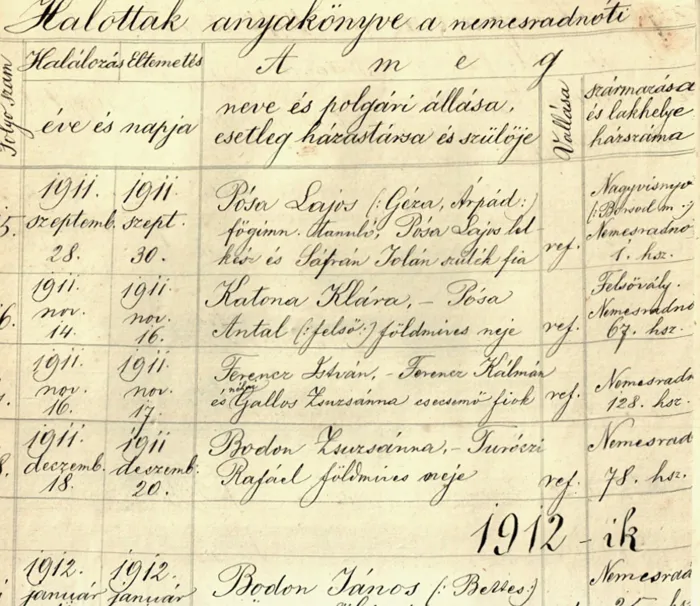 Halottak anyakönyve a nemesradnóti
Folyó szám
Halálozás Eltemetés
éve és napja
A meg
neve és polgári állása,
esetleg házastársa és szülője
Vallása
származása
és lakhelye
házszáma
5.
1911.
szeptemb.
28.
1911
szept.
30.
Pósa Lajos (: Géza, Árpád:)
főgimn. tanuló, Pósa Lajos lel
kész és Sáfrán Jolán szülék fia
ref.
Nagyvisnyó
(: Borsod m.:)
Nemesradnó
1. hsz.
6.
1911.
nov.
14.
1911.
nov.
16.
Katona Klára, - Pósa
Antal (: felső:) földmives neje
ref.
Felsővály.
Nemesradnó
67. hsz.
1911.
nov.
16.
1911
nov.
17.
Ferencz István, - Ferencz Kálmán
és Gallos Zsuzsánna csecsemő fiok
ref.
Nemesradn
128. hsz.
8.
1911.
deczemb.
18.
1911
deczemb.
20.
Bodon Zsuzsánna, - Turóczi
Rafáel földmives neje
ref.
Nemesrad
78. hsz.
1912 - ik
1912.
január
1912.
január
Bodon János (: Bettes:)
Nemesrad